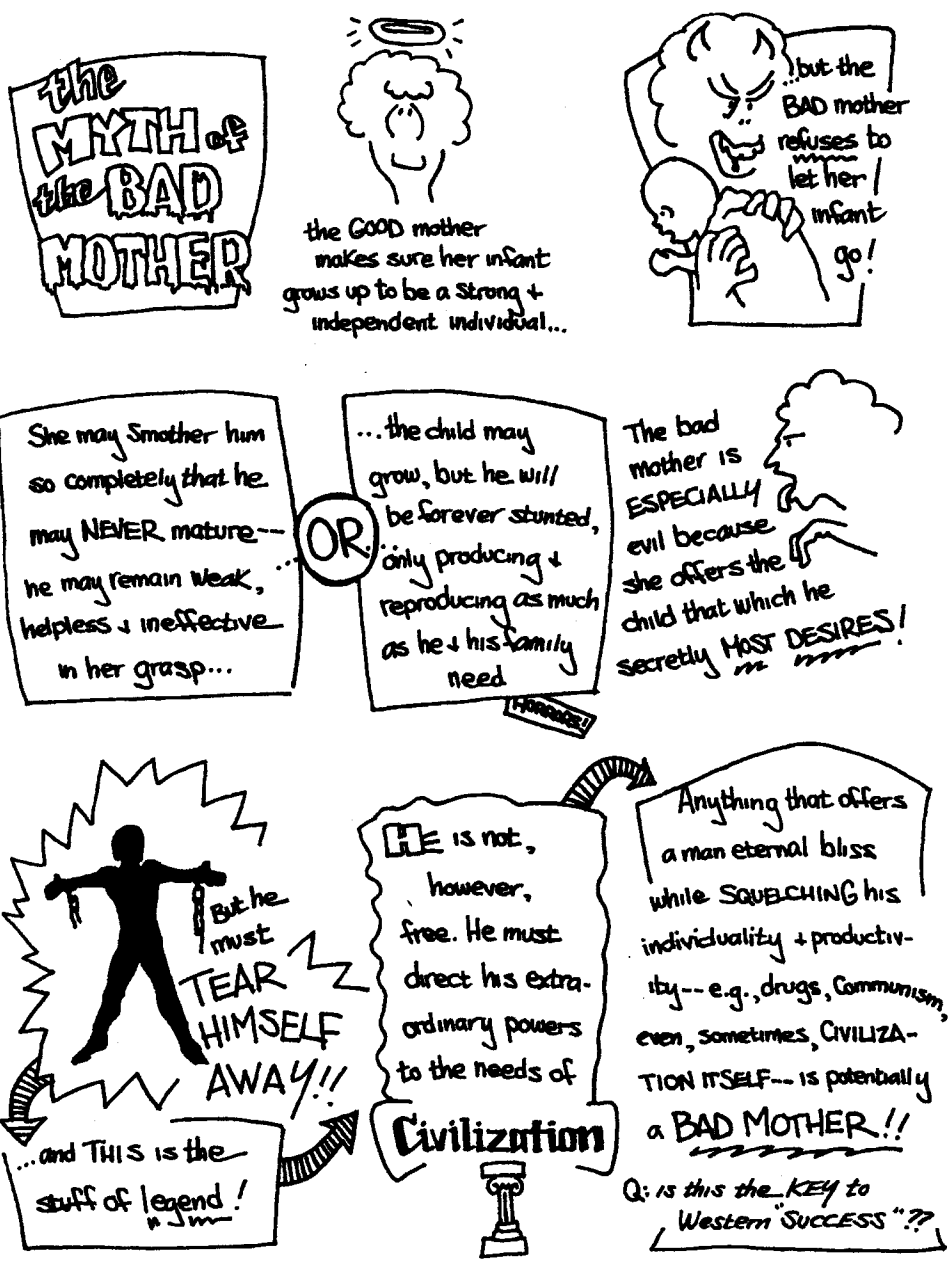 the
MYTH of
the BAD
MOTHER
the GOOD mother
makes sure her infant
grows up to be a strong +
independent individual...
...but the
BAD mother
refuses to
let her
infant
go!
She may smother him
so completely that he
may NEVER mature--
he may remain weak,
helpless + ineffective
in her grasp...
...OR...
...the child may
grow, but he will
be forever stunted,
only producing +
reproducing as much
as he + his family
need
HORRORS!
The bad
mother is
ESPECIALLY
evil because
she offers the
child that which he
secretly MOST DESIRES!
But he
must
TEAR
HIMSELF
AWAY!!
...and THIS is the
stuff of legend!
HE is not,
however,
free. He must
direct his extra-
ordinary powers
to the needs of
Civilization
Anything that offers
a man eternal bliss
while SQUELCHING his
individuality + productiv-
ity-- e.g., drugs, Communism,
even, sometimes, CIVILIZA-
TION ITSELF-- is potentially
a BAD MOTHER!!
Q: is this the KEY to
Western "SUCCESS"??